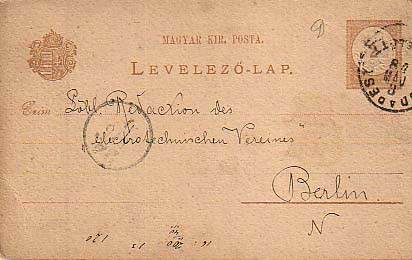 MAGYAR KIR. POSTA.
LEVELEZŐ-LAP.
Czim Löbl. Redaction des
electrotechnischen Vereines"
Berlin
N